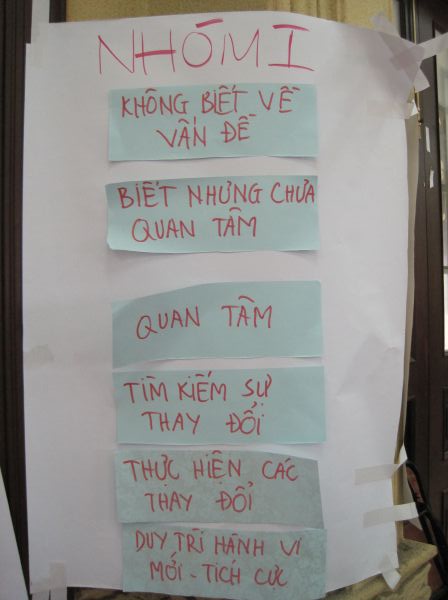 NHÓM I
KHÔNG BIẾT VỀ
VẤN ĐỀ
BIẾT NHƯNG CHƯA
QUAN TÂM
QUAN TÂM
TÌM KIẾM SỰ
THAY ĐỔI
THỰC HIỆN CÁC
THAY ĐỔI
DUY TRÌ HÀNH VI
MỚI - TÍCH CỰC